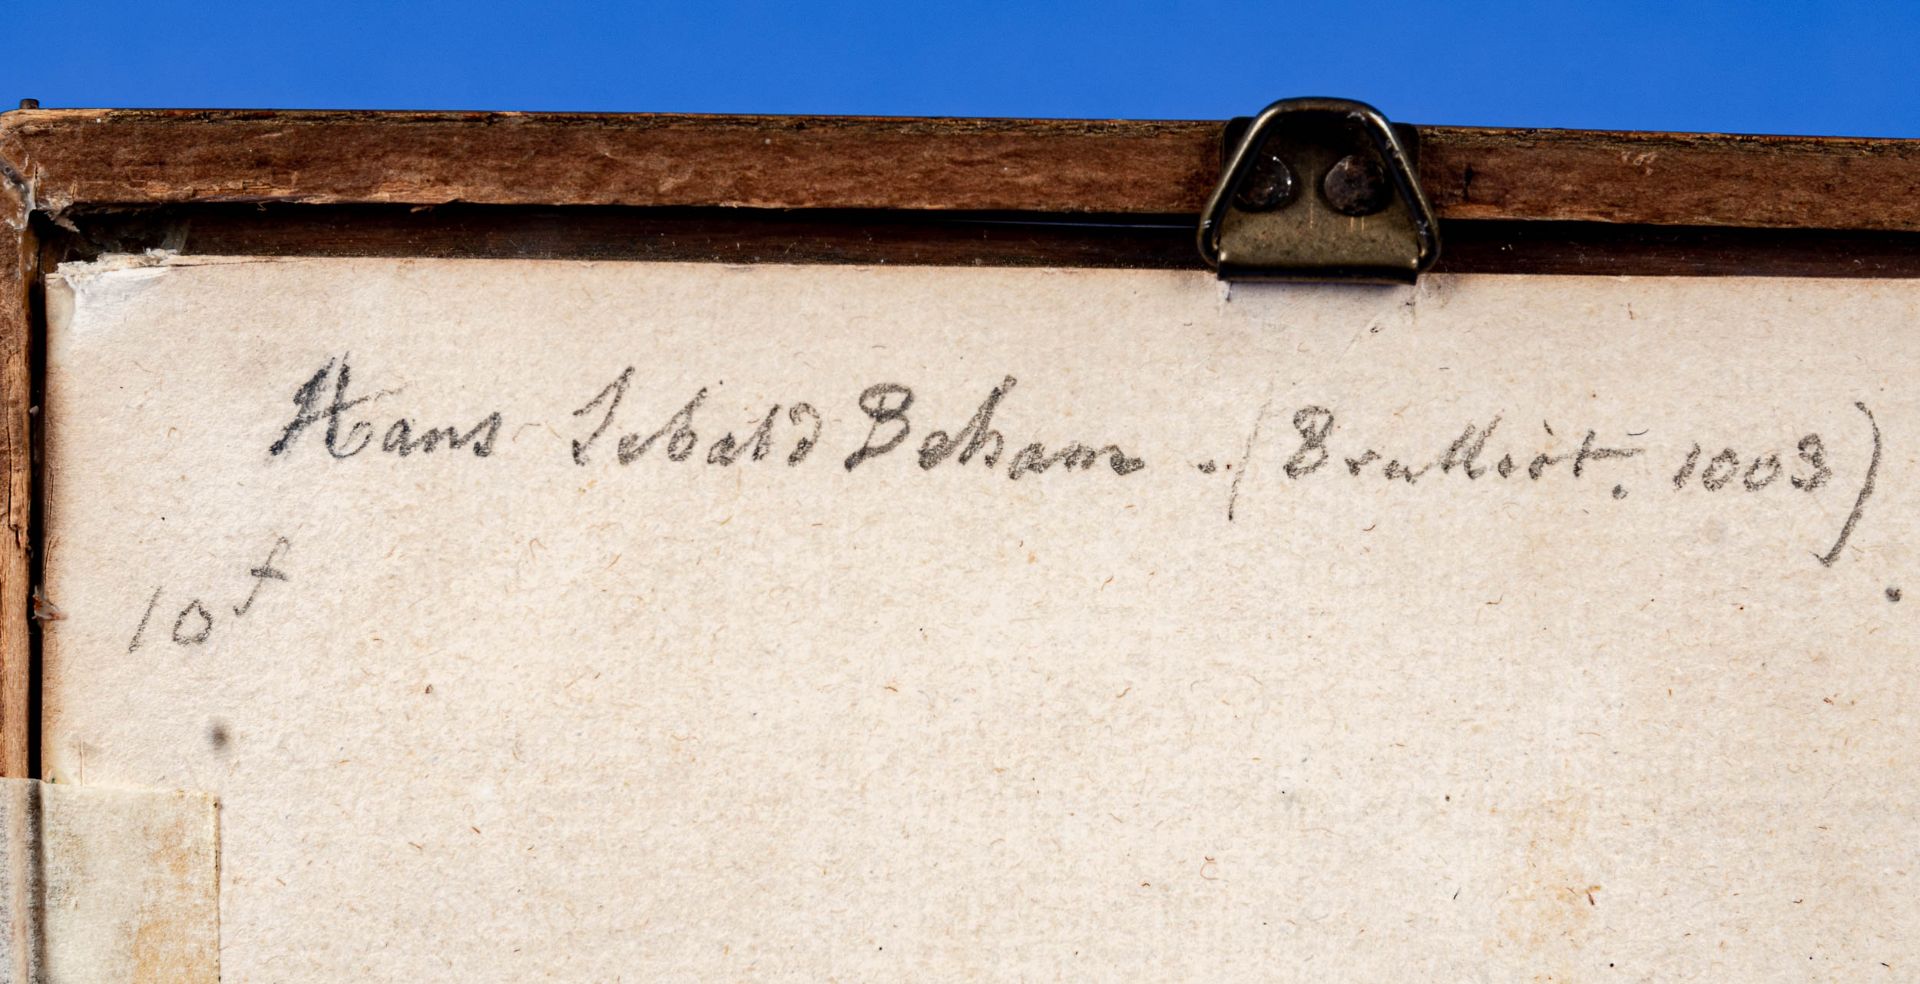 Hans Sebald Beham . (Brulliot. 1003) .
10 f